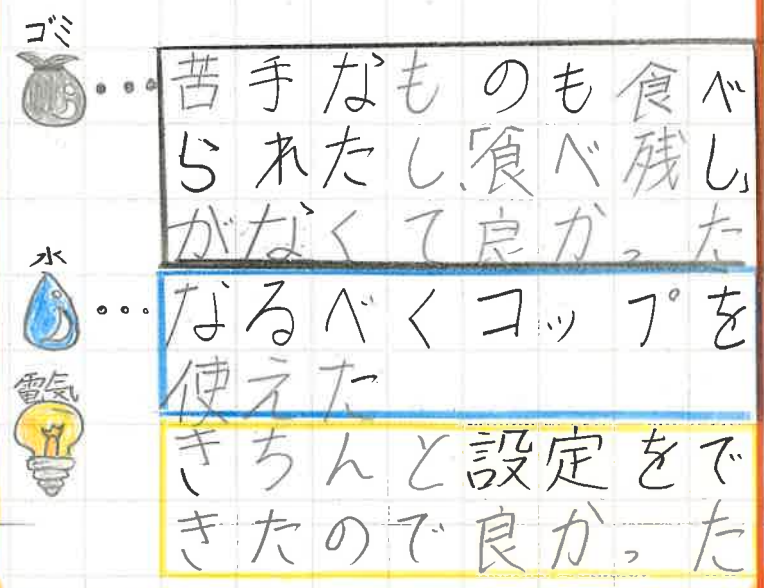 ゴミ
苦手なものも食べ
られたし、「食べ残し」
がなくて良かった
水
なるべくコップを
使えた
電気
きちんと設定をで
きたので良かった